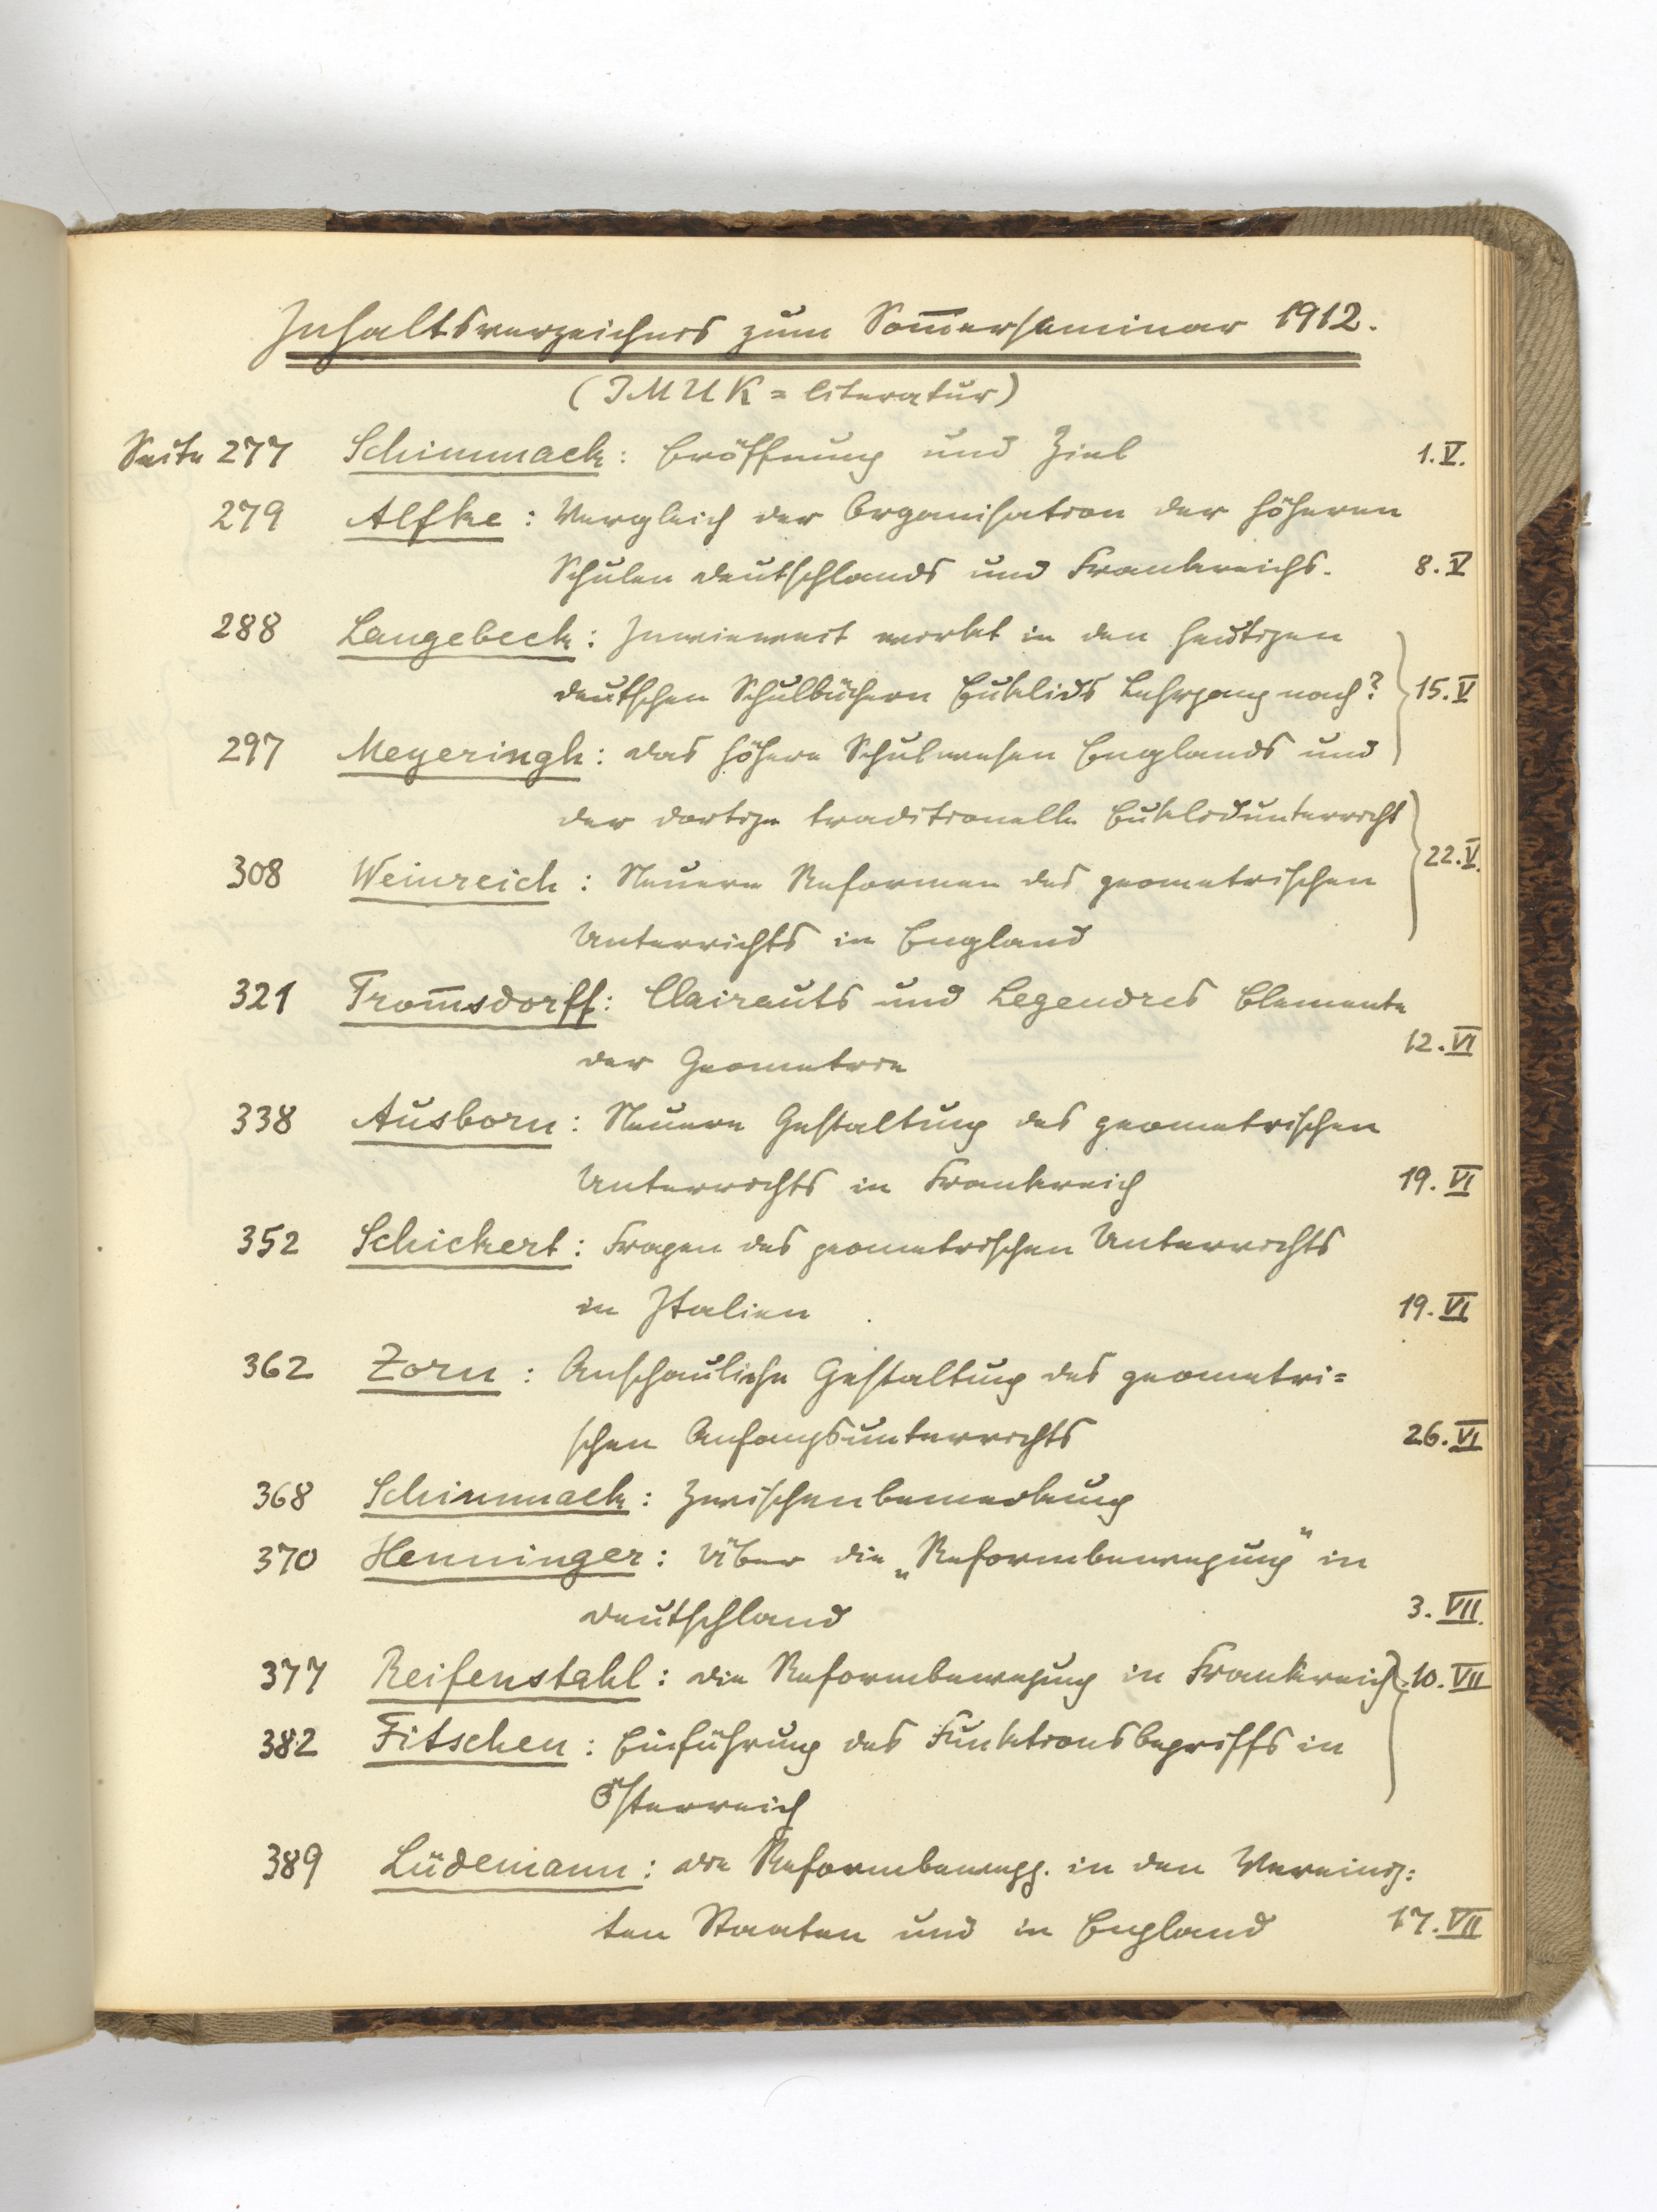 Inhaltsverzeichnis zum Som̅erseminar 1912.
(IMUK=Literatur)
Seite 277 Schimmack: Eröffnung und Ziel 1.V.
279 Alfke: Vergleich der Organisation der höheren
Schulen Deutschlands und Frankreichs. 8.V
288 Langebeck: Inwieweit wirkt in den heutigen
deutschen Schulbüchern Euklids Lehrgang nach? 15.V
297 Meyeringh: Das höhere Schulwesen Englands und
der dortige traditionelle Euklidunterricht
308 Weinreich: Neuere Reformen des geometrischen 22.V.
Unterrichts in England
321 Trom̅sdorff: Clairauts und Legendres Elemente
der Geometrie 12.VI
338 Ausborn: Neuere Gestaltung des geometrischen
Unterrichts in Frankreich 19.VI
352 Schickert: Fragen des geometrischen Unterrichts
in Italien 19.VI
362 Zorn: Anschauliche Gestaltung des geometri=
schen Anfangsunterrichts 26.VI
368 Schimmack: Zwischenbemerkung
370 Henninger: Über die „Reformbewegung" in
Deutschland 3.VII.
377 Reifenstahl: Die Reformbewegung in Frankreich 10.VII
382 Fitschen: Einführung des Funktionsbegriffs in
Österreich
389 Lüdemann: Die Reformbewegg. in den Vereinig=
ten Staaten und in England 17.VII